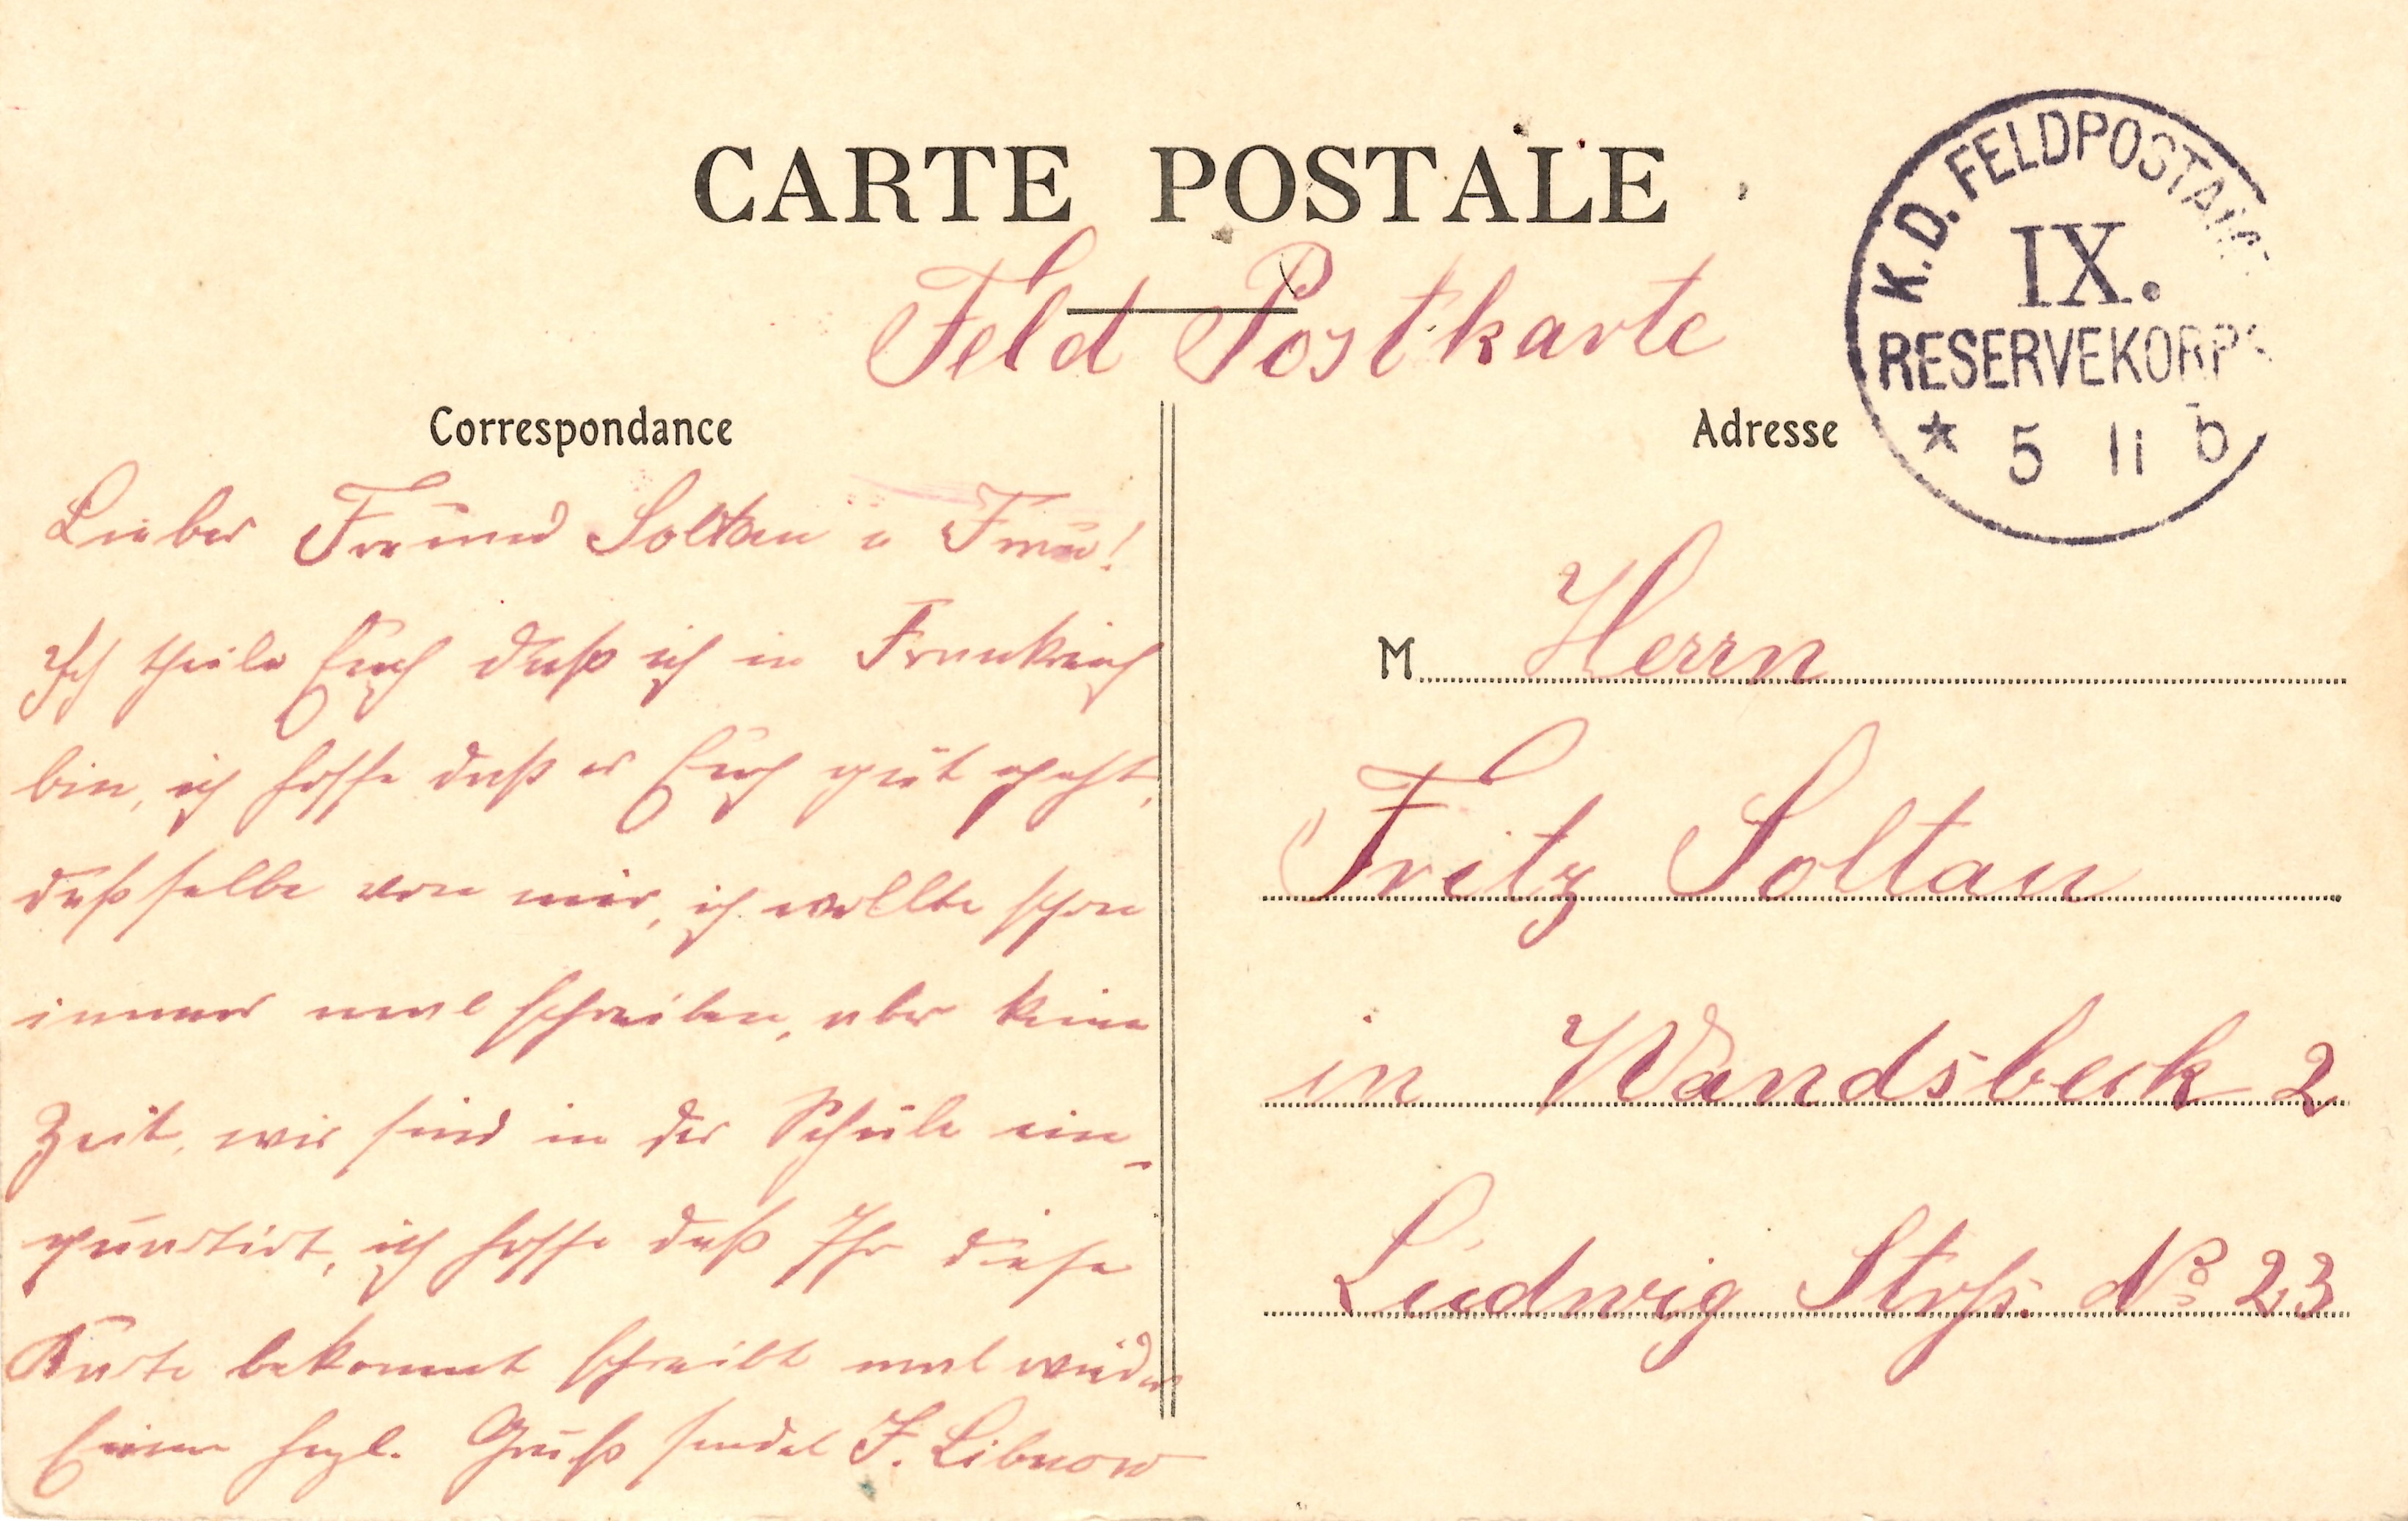 CARTE POSTALE
Feld Postkarte
K.D. FELDPOSTAMT
IX.
RESERVEKORPS
* 5 11
Correspondance
Lieber Freund Soltau u Frau!
Ich theile Euch daß ich in Frankreich
bin, ich hoffe daß es Euch gut geht,
daßselbe von mir, ich wollte schon
immer mal schreiben, aber keine
Zeit, wir sind in der Schule ein-
quartirt, ich hoffe daß Ihr diese
Karte bekommt schreibt mal wieder
Einen herzl. Gruß sendet F. Libnow
Adresse
M Herrn
Fritz Soltau
in Wandsbeck 2
Ludwig Strß. No 23